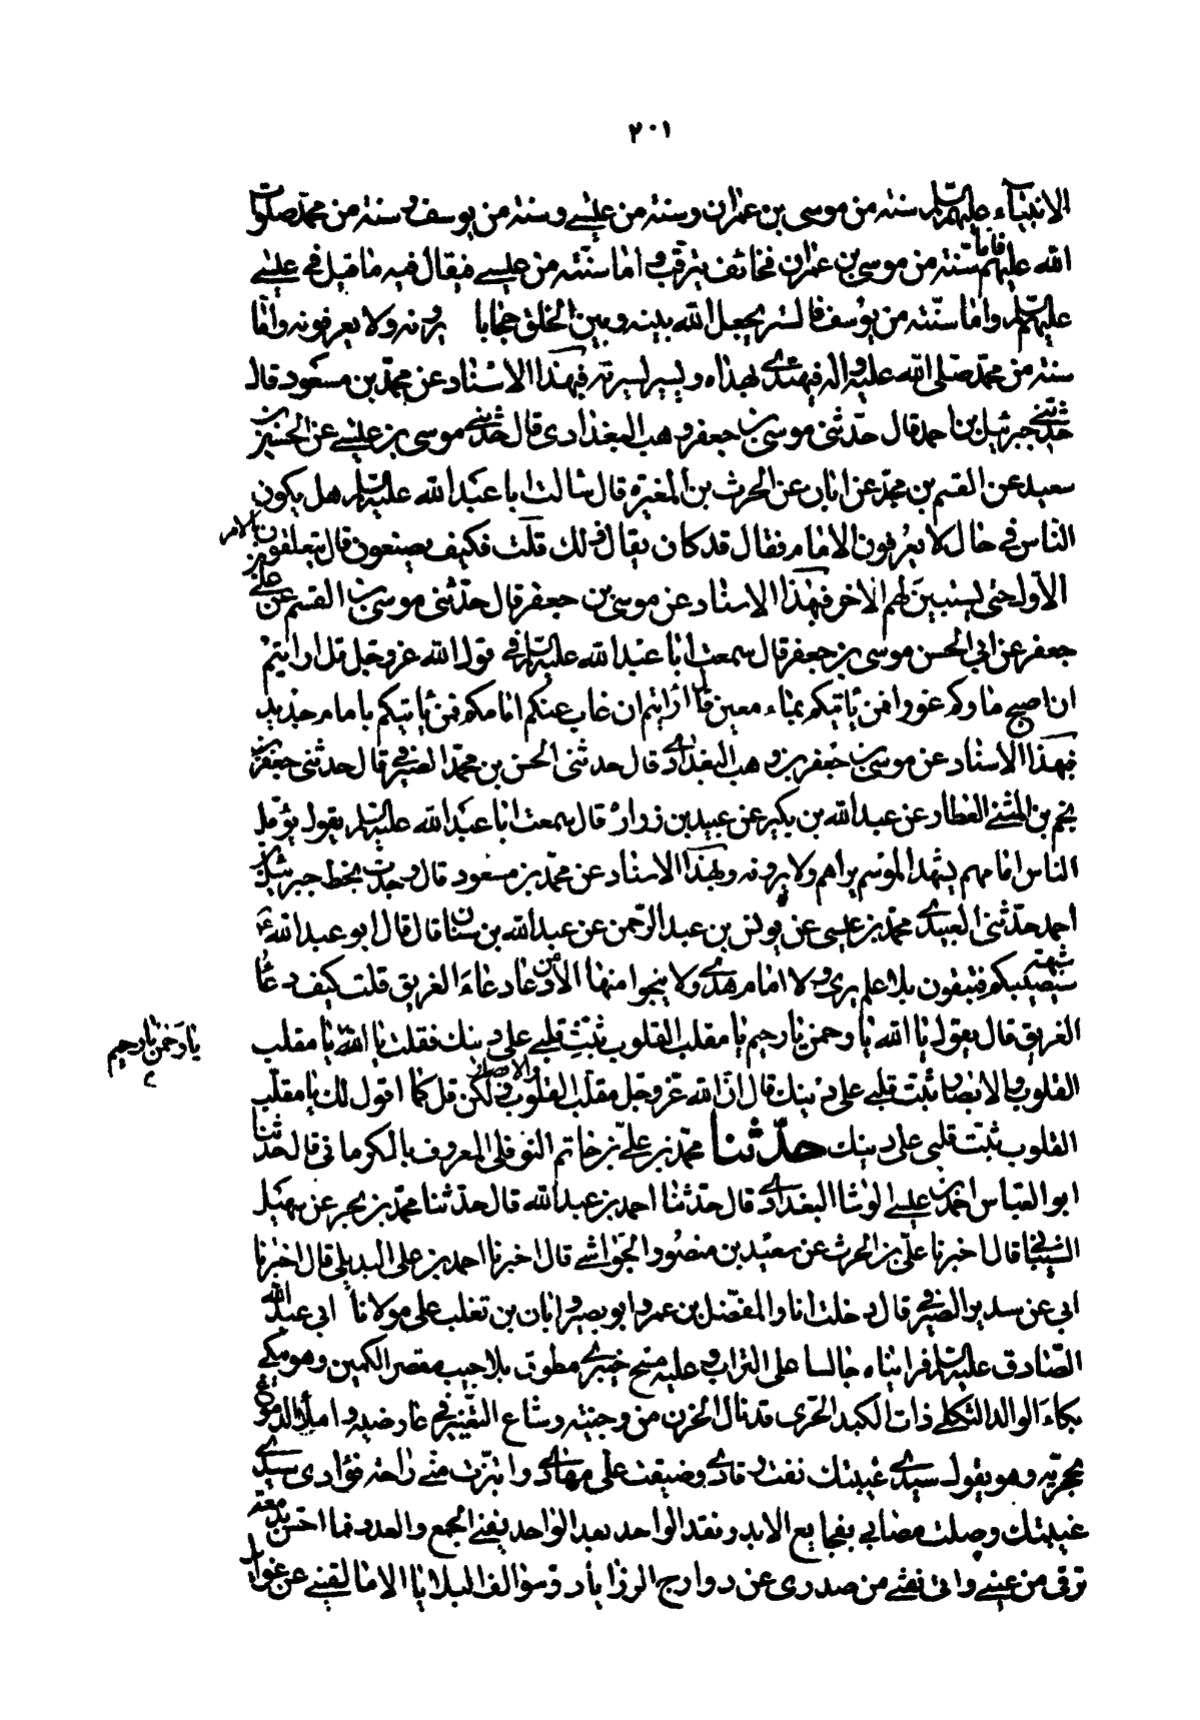 ٢٠١
الانبياء عليهم السلم سنته من موسى بن عمران وسنته من عيسى وسنته من يوسف وسنته من محمد صلوات
الله عليهم فاما سنته من موسى بن عمران فخائف يترقب واما سنته من عيسى فيقال فيه ما قيل في عيسى
عليه السلم واما سنته من يوسف فالستر يجعل الله بينه وبين الخلق حجابا يرونه ولا يعرفونه واما
سنته من محمد صلى الله عليه واله فيهتدى بهداه ويسير بسيرته فبهذا الاسناد عن محمد بن مسعود قال
حدثني جبرئيل بن احمد قال حدثنى موسى بن جعفر وهب البغدادى قال حدثني موسى بن عيسى عن الحسين بن
سعيد عن القسم بن محمد عن ابان عن الحرث بن المغيرة قال سالت ابا عبد الله عليه السلم هل يكون
الناس في حال لا يعرفون الامام فقال قد كان يقال ذلك قلت فكيف يصنعون قال يتعلقون بالامر
الاول حتى يستبين لهم الاخر فبهذا الاسناد عن موسى بن جعفر قال حدثنى موسى بن القسم عن علي بن
جعفر عن ابي الحسن موسى بن جعفر قال سمعت ابا عبد الله عليه السلم في قول الله عز وجل قل ارايتم
ان اصبح ماوكم غورا فمن ياتيكم بماء معين قل ارايتم ان غاب عنكم امامكم فمن ياتيكم بامام جديد
فبهذا الاسناد عن موسى بن جعفر بن وهب البغدادي قال حدثنى الحسن بن محمد الصيرفي قال حدثنى جعفر بن
يحيى بن المثنى العطار عن عبد الله بن بكير عن عبيد بن زرارة قال سمعت ابا عبد الله عليه السلم يقول يفقد
الناس امامهم يشهد الموسم يراهم ولا يرونه وبهذا الاسناد عن محمد بن مسعود قال وجدت بخط جبرئيل بن
احمد حدثنى العبيدي محمد بن عيسى عن يونس بن عبد الرحمن عن عبد الله بن سنان قال قال ابو عبد الله ع
سيصيبكم شبهة فتبقون بلا علم يرى ولا امام هدى ولا ينجوا منها الا من دعا دعاء الغريق قلت كيف دعا
الغريق قال يقول يا الله يا رحمن يا رحيم يا مقلب القلوب ثبت قلبي على دينك فقلت يا الله يا مقلب
يا رحمن يا رحيم
القلوب والابصار ثبت قلبي على دينك قال ان الله عز وجل مقلب القلوب والابصار ولكن قل كما اقول لك يا مقلب
القلوب ثبت قلبي على دينك حدثنا محمد بن علي بن حاتم النوفلى المعروف بالكرمانى قال حدثنا
ابو العباس احمد بن عيسى الوشا البغدادي قال حدثنا احمد بن عبد الله قال حدثنا محمد بن بحر عن سهيل
الشيباني قال اخبرنا علي بن الحرث عن سعيد بن منصور الجواشني قال اخبرنا احمد بن على البديلى قال اخبرنا
ابي عن سدير الصيرفي قال دخلت انا والمفضل بن عمر وابو بصير وابان بن تغلب على مولانا ابي عبد الله
الصادق عليه السلم فرايناه جالسا على التراب وعليه مسح خيبري مطوق بلا جيب مقصر الكمين وهو يبكي
بكاء الوالد الثكلى ذات الكبد الحرى قد نال الحزن من وجنتيه وشاع التغيير في عارضيه وابلى الدموع
محجريه وهو يقول سيدي غيبتك نفت رقادي وضيقت على مهادي وابتزت منى راحة فؤادى سيدي
غيبتك وصلت مصابي بفجايع الابد وفقد الواحد بعد الواحد يفنى الجمع والعدد فما احس بدمعة
ترقى من عيني وانين يفتر من صدرى عن دوارج الرزايا وسوالف البلايا الا مثل لعيني عن غوابر